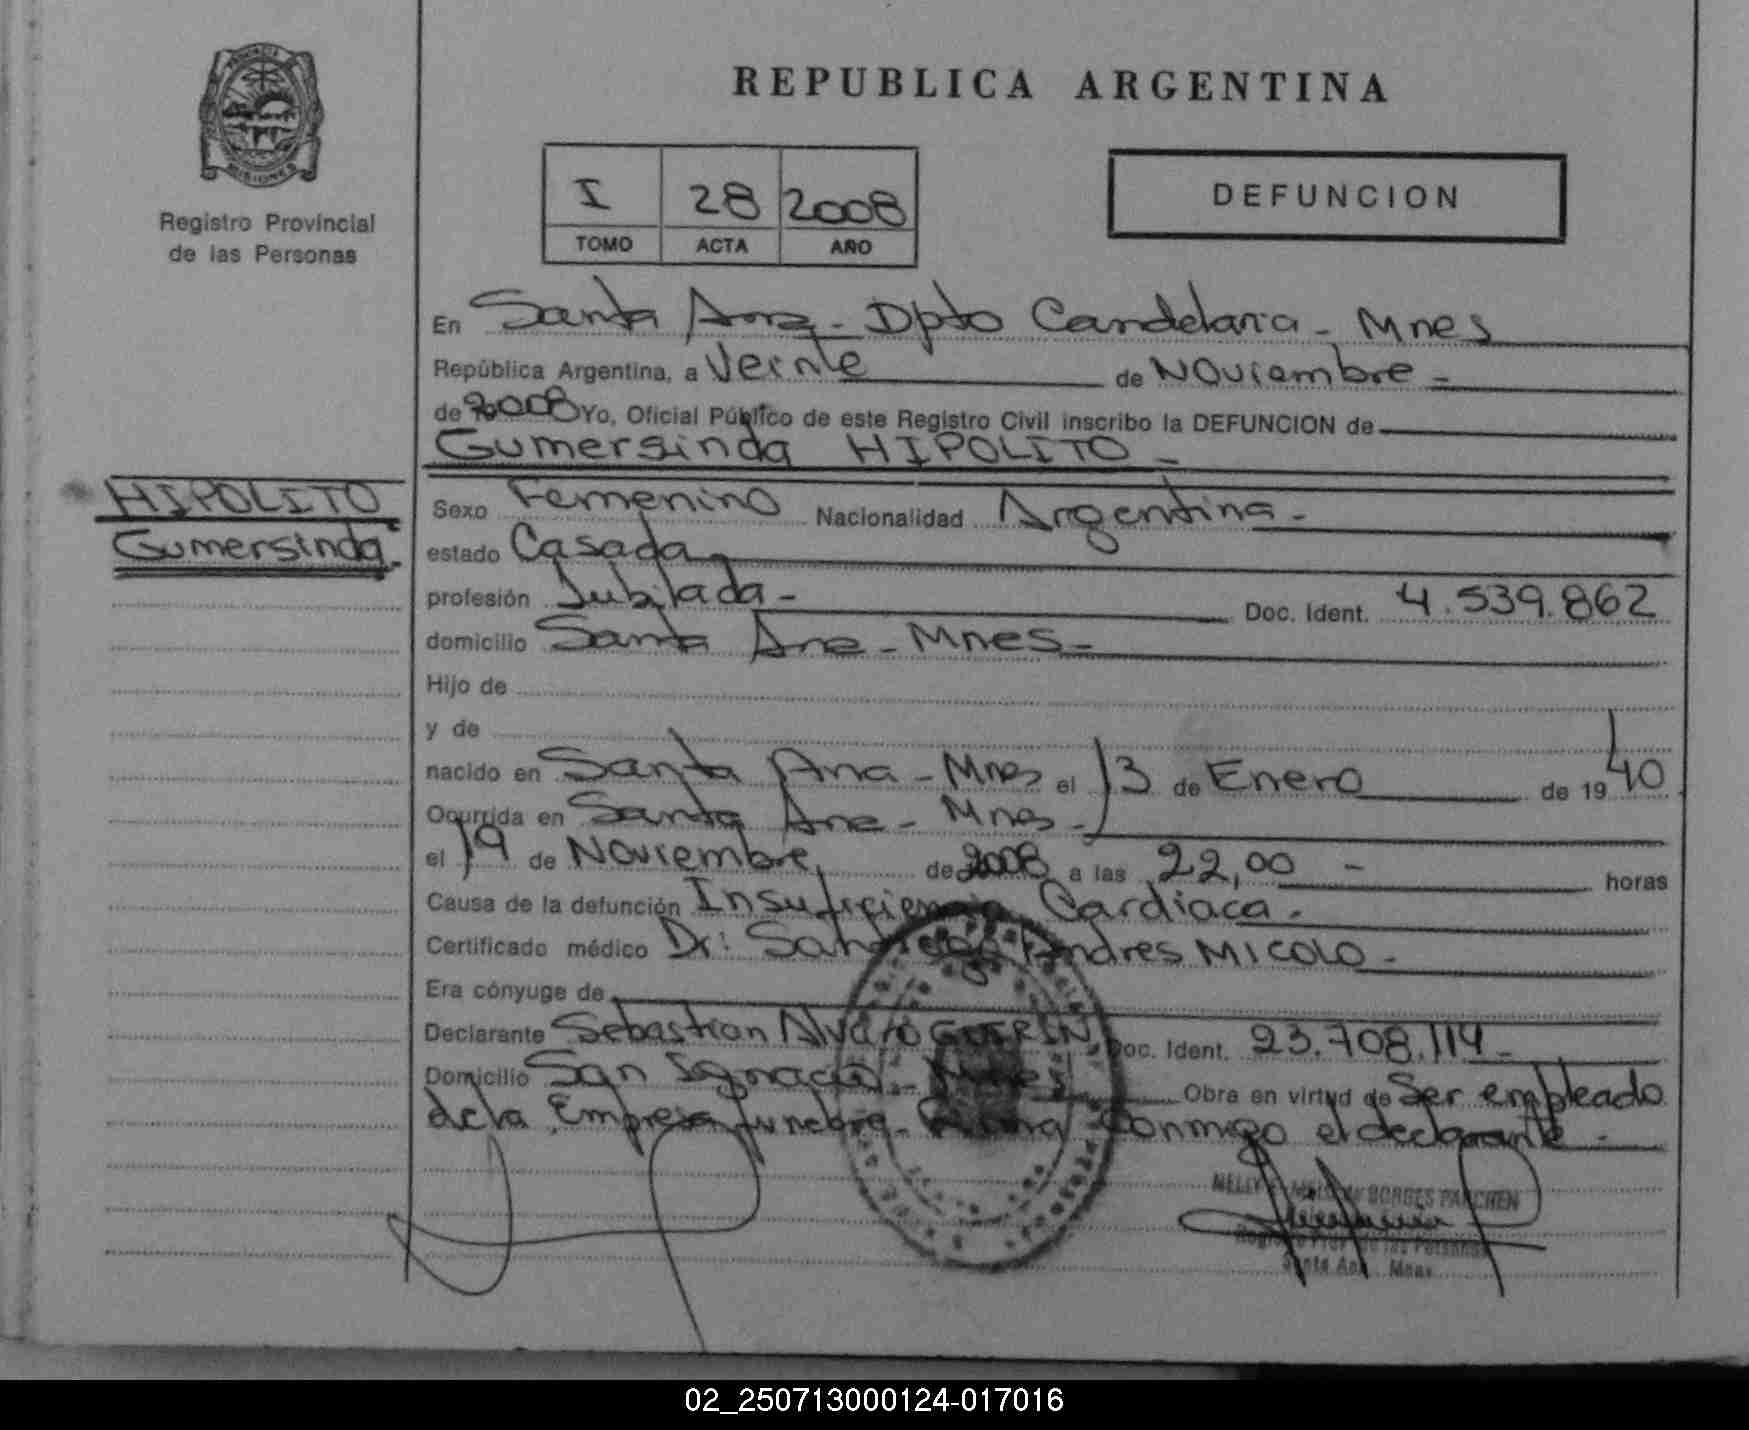 REPUBLICA ARGENTINA
PROVINCIA
MISIONES
Registro Provincial
de las Personas
I 28 2008
TOMO ACTA AÑO
DEFUNCION
En Santa Ana - Dpto Candelaria - Mnes
República Argentina, a Veinte de Noviembre -
de 2008 Yo, Oficial Público de este Registro Civil inscribo la DEFUNCION de
Gumersinda HIPOLITO -
HIPOLITO
Gumersinda
Sexo Femenino Nacionalidad Argentina -
estado Casada
profesión Jubilada - Doc. Ident. 4.539.862
domicilio Santa Ana - Mnes -
Hijo de
y de
nacido en Santa Ana - Mnes el 13 de Enero de 1940
Ocurrida en Santa Ana - Mnes -
el 19 de Noviembre de 2008 a las 22,00 - horas
Causa de la defunción Insuficiencia Cardiaca.
Certificado médico Dr: Santiago Andres MICOLO -
Era cónyuge de
Declarante Sebastian Alvaro GUERIN Doc. Ident. 23.708.114 -
Domicilio San Ignacio - Mnes Obra en virtud de Ser empleado
de la Empresa funebre - Firma Conmigo el declarante -
NELLY BORGES PARCHEN
Registro Prov. de las Personas
Santa Ana Mnes
02_250713000124-017016